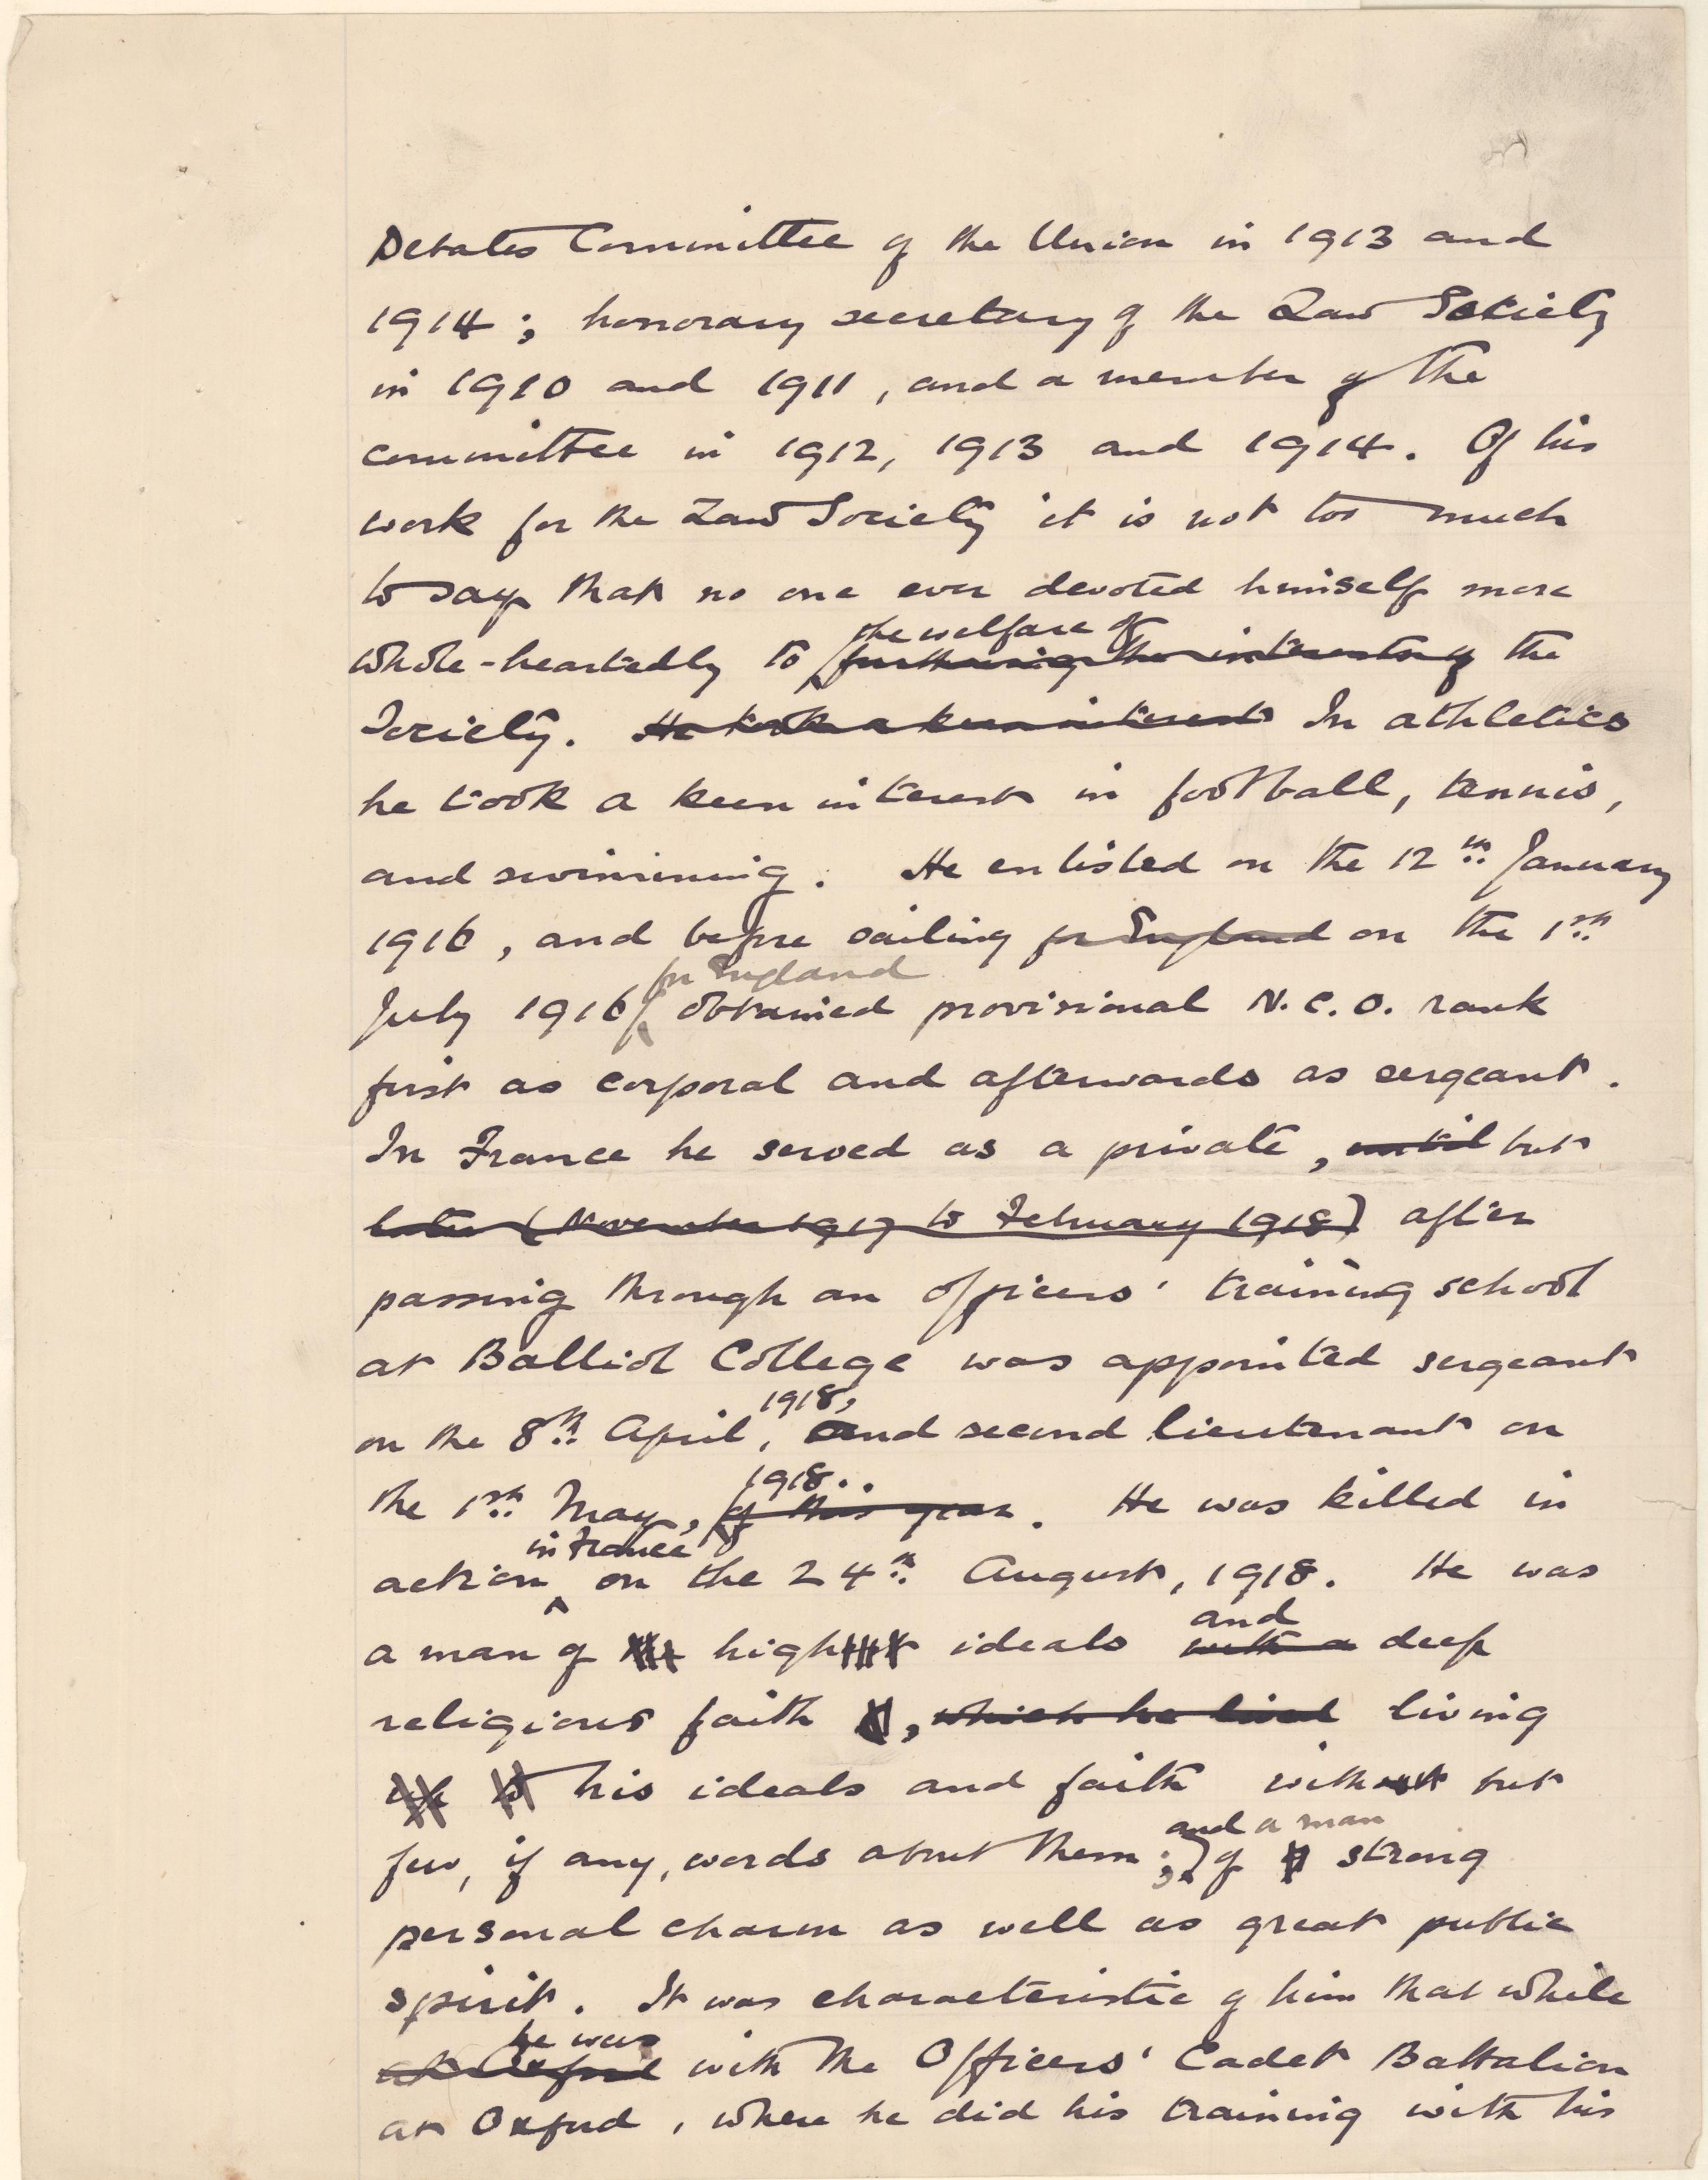 Debates Committee of the Union in 1913 and
1914; honorary secretary of the Law Society
in 1910 and 1911, and a member of the
committee in 1912, 1913 and 1914. Of his
work for the Law Society it is not too much
to say that no one ever devoted himself more
the welfare of
whole-heartedly to furthering the interests of the
Society. He took a keen interest In athletics
he took a keen interest in football, tennis,
and swimming. He enlisted on the 12th January
1916, and before sailing for England on the 1st
for England
July 1916 obtained provisional N.C.O. rank
first as corporal and afterwards as sergeant.
In France he served as a private, until but
later (November 1917 to February 1918) after
passing through an officers' training school
at Balliol College was appointed sergeant
1918,
on the 8th April, and second lieutenant on
1918..
the 1st May, of this year. He was killed in
in France
action on the 24th August, 1918. He was
and
a man of high ideals with a deep
religious faith, which he lived living
his ideals and faith without but
and a man
few, if any, words about them; of strong
personal charm as well as great public
spirit. It was characteristic of him that while
he was
at Oxford with the Officers' Cadet Battalion
at Oxford, where he did his training with his